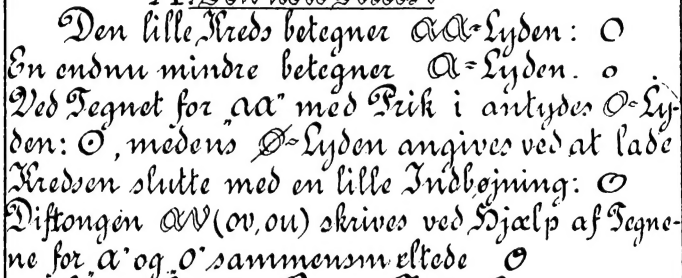 Den lille Kreds betegner AA-Lyden: O
En endnu mindre betegner A-Lyden. o
Ved Tegnet for „aa" med Prik i antydes O-Ly-
den: ʘ, medens Ø-Lyden angives ved at lade
Kredsen slutte med en lille Indbøjning:
Diftongen AV (ov, ou) skrives ved Hjælp af Tegne-
ne for „a" og „o" sammensmeltede